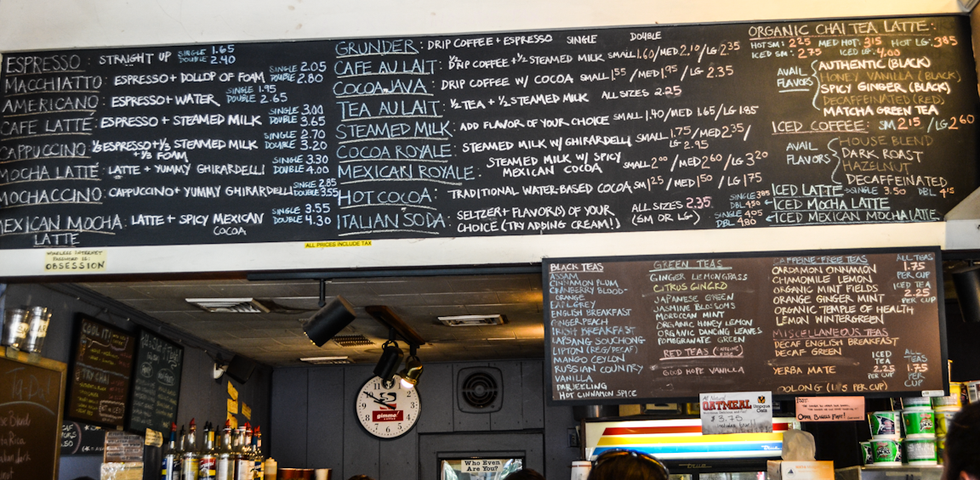 ESPRESSO: STRAIGHT UP SINGLE 1.65 DOUBLE 2.40
MACCHIATTO: ESPRESSO + DOLLOP OF FOAM SINGLE 2.05 DOUBLE 2.80
AMERICANO: ESPRESSO + WATER SINGLE 1.95 DOUBLE 2.65
CAFE LATTE: ESPRESSO + STEAMED MILK SINGLE 3.00 DOUBLE 3.65
CAPPUCCINO: 1/3 ESPRESSO + 1/3 STEAMED MILK + 1/3 FOAM SINGLE 2.70 DOUBLE 3.20
MOCHA LATTE: LATTE + YUMMY GHIRARDELLI SINGLE 3.30 DOUBLE 4.00
MOCHACCINO: CAPPUCCINO + YUMMY GHIRARDELLI SINGLE 2.85 DOUBLE 3.55
MEXICAN MOCHA LATTE: LATTE + SPICY MEXICAN COCOA SINGLE 3.55 DOUBLE 4.30
GRUNDER: DRIP COFFEE + ESPRESSO SINGLE DOUBLE
CAFE AU LAIT: 1/2 DRIP COFFEE + 1/2 STEAMED MILK SMALL 1.60/MED 2.10/LG 2.35
COCOAJAVA: DRIP COFFEE W/ COCOA SMALL 1.55/MED 1.95/LG 2.35
TEA AU LAIT: 1/2 TEA + 1/2 STEAMED MILK ALL SIZES 2.25
STEAMED MILK: ADD FLAVOR OF YOUR CHOICE SMALL 1.40/MED 1.65/LG 1.85
COCOA ROYALE: STEAMED MILK W/ GHIRARDELLI SMALL 1.75/MED 2.35/LG 2.95
MEXICAN ROYALE: STEAMED MILK W/ SPICY MEXICAN COCOA SMALL 2.00/MED 2.60/LG 3.20
HOT COCOA: TRADITIONAL WATER-BASED COCOA SM 1.25/MED 1.50/LG 1.75
ITALIAN SODA: SELTZER + FLAVOR(S) OF YOUR CHOICE (TRY ADDING CREAM!) ALL SIZES 2.35 (SM OR LG)
ORGANIC CHAI TEA LATTE:
HOT SM: 2.25 MED HOT: 3.15 HOT LG: 3.85
ICED SM: 2.75 ICED LG: 4.00
AVAIL FLAVORS
AUTHENTIC (BLACK)
HONEY VANILLA (BLACK)
SPICY GINGER (BLACK)
DECAFFEINATED (RED)
MATCHA GREEN TEA
ICED COFFEE: SM 2.15 / LG 2.60
AVAIL FLAVORS
HOUSE BLEND
DARK ROAST
HAZELNUT
DECAFFEINATED
ICED LATTE SINGLE 3.50 DBL 4.15
SINGLE 3.85 DBL 4.50 ICED MOCHA LATTE
SINGLE 4.05 DBL 4.80 ICED MEXICAN MOCHA LATTE
ALL PRICES INCLUDE TAX
WIRELESS INTERNET
PASSWORD IS:
OBSESSION
BLACK TEAS
ASSAM
CINNAMON PLUM
CRANBERRY BLOOD-
ORANGE
EARL GREY
ENGLISH BREAKFAST
GINGER PEACH
IRISH BREAKFAST
LAPSANG SOUCHONG
LIPTON (REG/DECAF)
MANGO CEYLON
RUSSIAN COUNTRY
VANILLA
DARJEELING
HOT CINNAMON SPICE
GREEN TEAS
GINGER LEMONGRASS
CITRUS GINGKO
JAPANESE GREEN
JASMINE BLOSSOMS
MOROCCAN MINT
ORGANIC HONEY LEMON
ORGANIC DANCING LEAVES
POMEGRANATE GREEN
RED TEAS
GOOD HOPE VANILLA
CAFFEINE-FREE TEAS
CARDAMON CINNAMON
CHAMOMILE LEMON
ORGANIC MINT FIELDS
ORANGE GINGER MINT
ORGANIC TEMPLE OF HEALTH
LEMON WINTERGREEN
ALL TEAS
1.75
PER CUP
ICED TEA
2.25
PER CUP
MISCELLANEOUS TEAS
DECAF ENGLISH BREAKFAST
DECAF GREEN
YERBA MATE
OOLONG
ICED TEAS 2.25 PER CUP
ALL TEAS 1.75 PER CUP
gimme!
OATMEAL
Who Even
Are You?